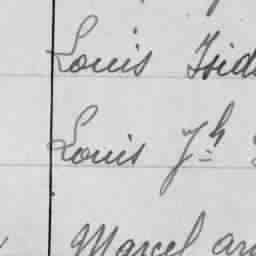 Louis Isid
Louis Jh
Marcel